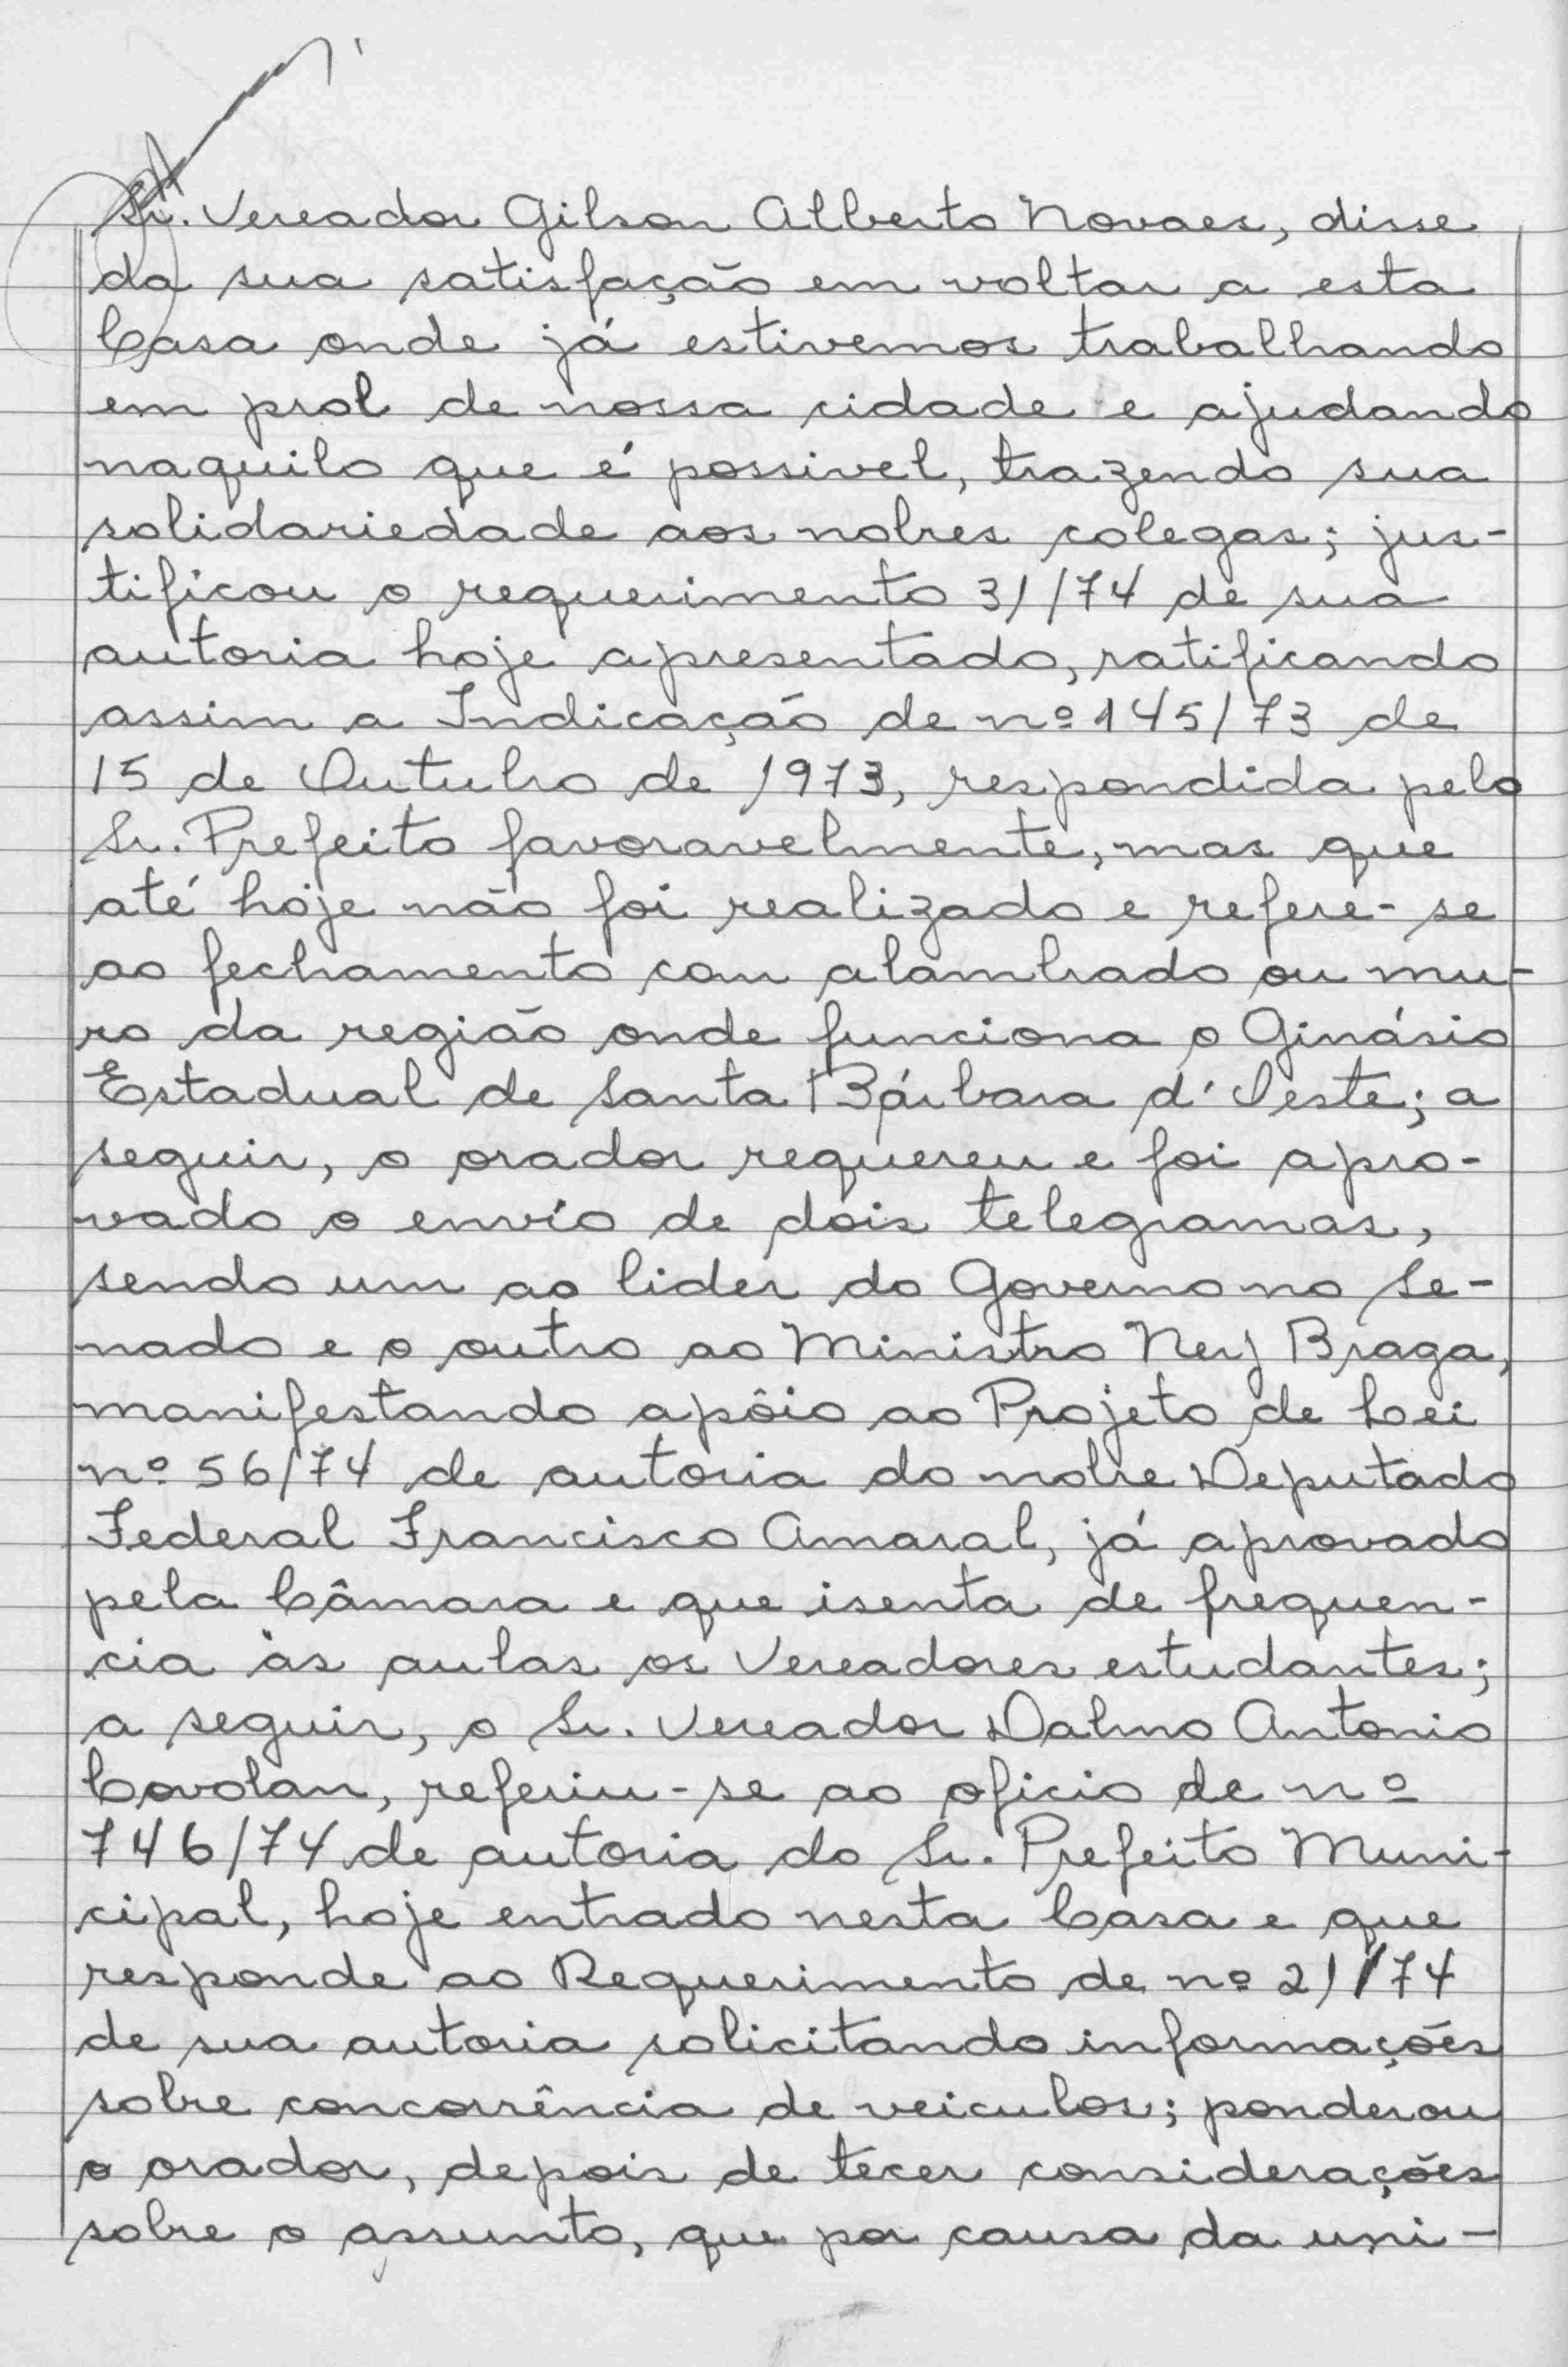 Sr. Vereador Gilson Alberto Novaes, disse
da sua satisfação em voltar a esta
Casa onde já estivemos trabalhando
em prol de nossa cidade e ajudando
naquilo que é possivel, trazendo sua
solidariedade aos nobres colegas; jus-
tificou o requerimento 31/74 de sua
autoria hoje apresentado, ratificando
assim a Indicação de nº 145/73 de
15 de Outubro de 1973, respondida pelo
Sr. Prefeito favoravelmente, mas que
até hoje não foi realizado e refere-se
ao fechamento com alambrado ou mu-
ro da região onde funciona o Ginásio
Estadual de Santa Bárbara d'Oeste; a
seguir, o orador requereu e foi apro-
vado o envío de dois telegramas,
sendo um ao lider do Governo no Se-
nado e o outro ao Ministro Ney Braga,
manifestando apôio ao Projeto de Lei
nº 56/74 de autoria do nobre Deputado
Federal Francisco Amaral, já aprovado
pela Câmara e que isenta de frequen-
cia às aulas os Vereadores estudantes;
a seguir, o Sr. Vereador Dalmo Antonio
Covolan, referiu-se ao oficio de nº
746/74 de autoria do Sr. Prefeito Muni-
cipal, hoje entrado nesta Casa e que
responde ao Requerimento de nº 21/74
de sua autoria solicitando informações
sobre concorrência de veiculos; ponderou
o orador, depois de tecer considerações
sobre o assunto, que por causa da uni-